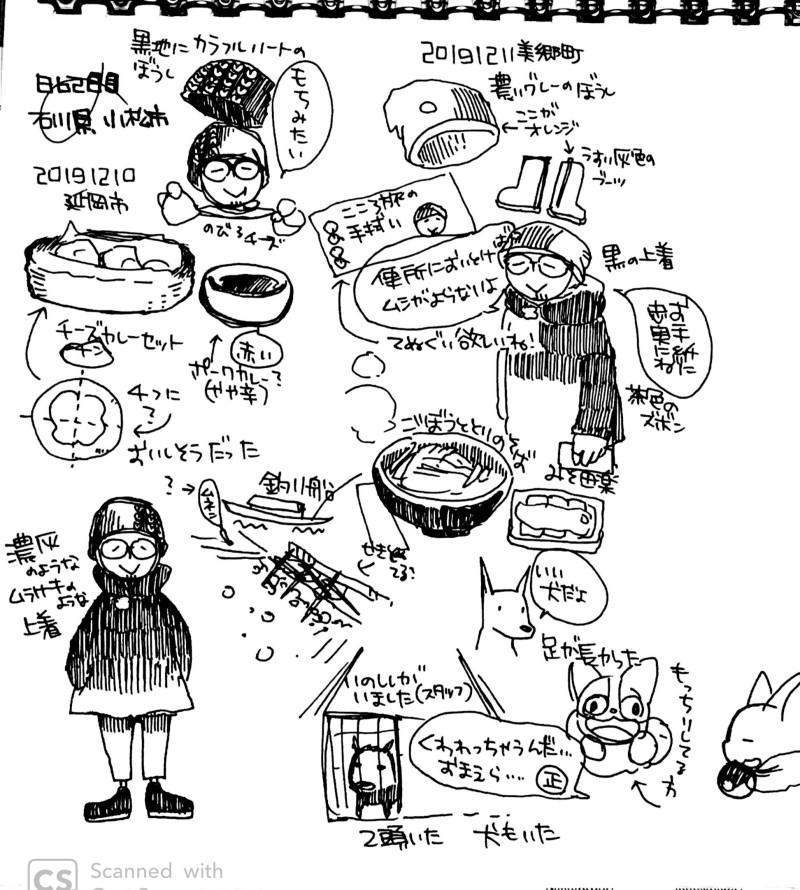 黒地にカラフルハートの
ぼうし
もちみたい
石川県 小松市
20191210
延岡市
のびるチーズ
チーズカレーセット
ナン
4つに
?
おいしそうだった
赤い
ポークカレー?
(やや辛)
20191211美郷町
濃いグレーのぼうし
ここが
オレンジ
うすい灰色の
ブーツ
こころ旅の
手拭い
便所においとけば
ムシがよらないよ
てぬぐい欲しいね!
黒の上着
お手紙に
茶色の
ズボン
みそ田楽
ごぼうととりのそば
釣り船
?
濃灰
のような
ムラサキの
ような
上着
いい
犬だよ
足が長かった
いのししが
いました(スタッフ)
くわれっちゃうんだ…
おまえら…
正
もっちりしてる
方
2頭いた 犬もいた
CS
Scanned with